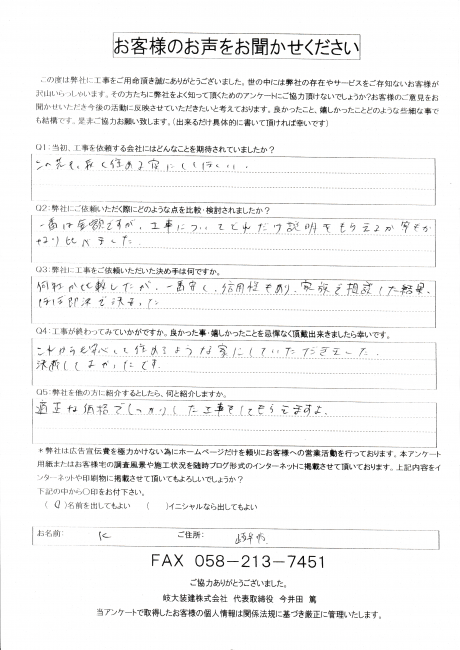 お客様のお声をお聞かせください
この度は弊社に工事をご用命頂き誠にありがとうございました。世の中には弊社の存在やサービスをご存知ないお客様が
沢山いらっしゃいます。その方たちに弊社をよく知って頂くためのアンケートにご協力頂けないでしょうか?お客様のご意見をお
聞かせいただき今後の活動に反映させていただきたいと考えております。良かったこと、嬉しかったことどのような些細な事で
も結構です。是非ご協力お願い致します。(出来るだけ具体的に書いて頂ければ幸いです)
Q1:当初、工事を依頼する会社にはどんなことを期待されていましたか?
この先も安心して住める家にしてほしい.
Q2:弊社にご依頼いただく際にどのような点を比較・検討されましたか?
一番は金額ですが、工事についてどれだけ説明をもらえるか等もか
なり比べました.
Q3:弊社に工事をご依頼いただいた決め手は何ですか。
何社か比較したが、一番安く、信用性もあり、家族と相談した結果、
ほぼ即決で決まった
Q4:工事が終わってみていかがですか。良かった事・嬉しかったことを忌憚なく頂戴出来きましたら幸いです。
これからも安心して住めるような家にしていただきました.
決断してよかったです.
Q5:弊社を他の方に紹介するとしたら、何と紹介しますか。
適正な価格でしっかりした工事をしてもらえますよ.
*弊社は広告宣伝費を極力かけない為にホームページだけを頼りにお客様への営業活動を行っております。本アンケート
用紙またはお客様宅の調査風景や施工状況を随時ブログ形式のインターネットに掲載させて頂いております。上記内容をイ
ンターネットや印刷物に掲載させて頂いてもよろしいでしょうか?
下記の中から○印をお付下さい。
(○)名前を出してもよい ( )イニシャルなら出してもよい
お名前: K ご住所: 岐阜市
FAX 058-213-7451
ご協力ありがとうございました。
岐大装建株式会社 代表取締役 今井田 篤
当アンケートで取得したお客様の個人情報は関係法規に基づき厳正に管理いたします。